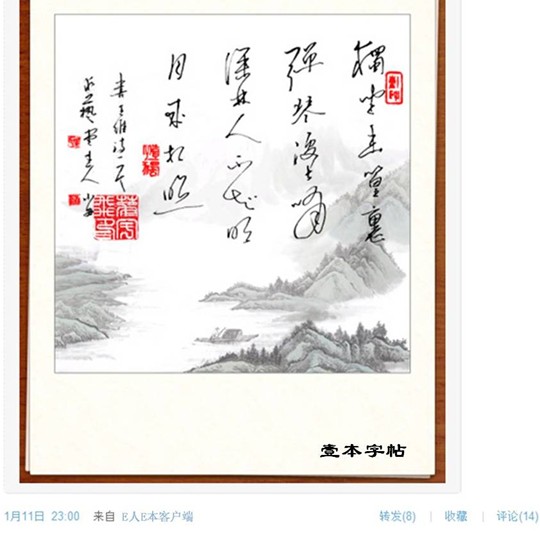 獨坐幽篁裏
彈琴復長嘯
深林人不知明
月来相照
王維詩一首
壹本字帖
1月11日 23:00 来自 E人E本客户端
转发(8) | 收藏 | 评论(14)